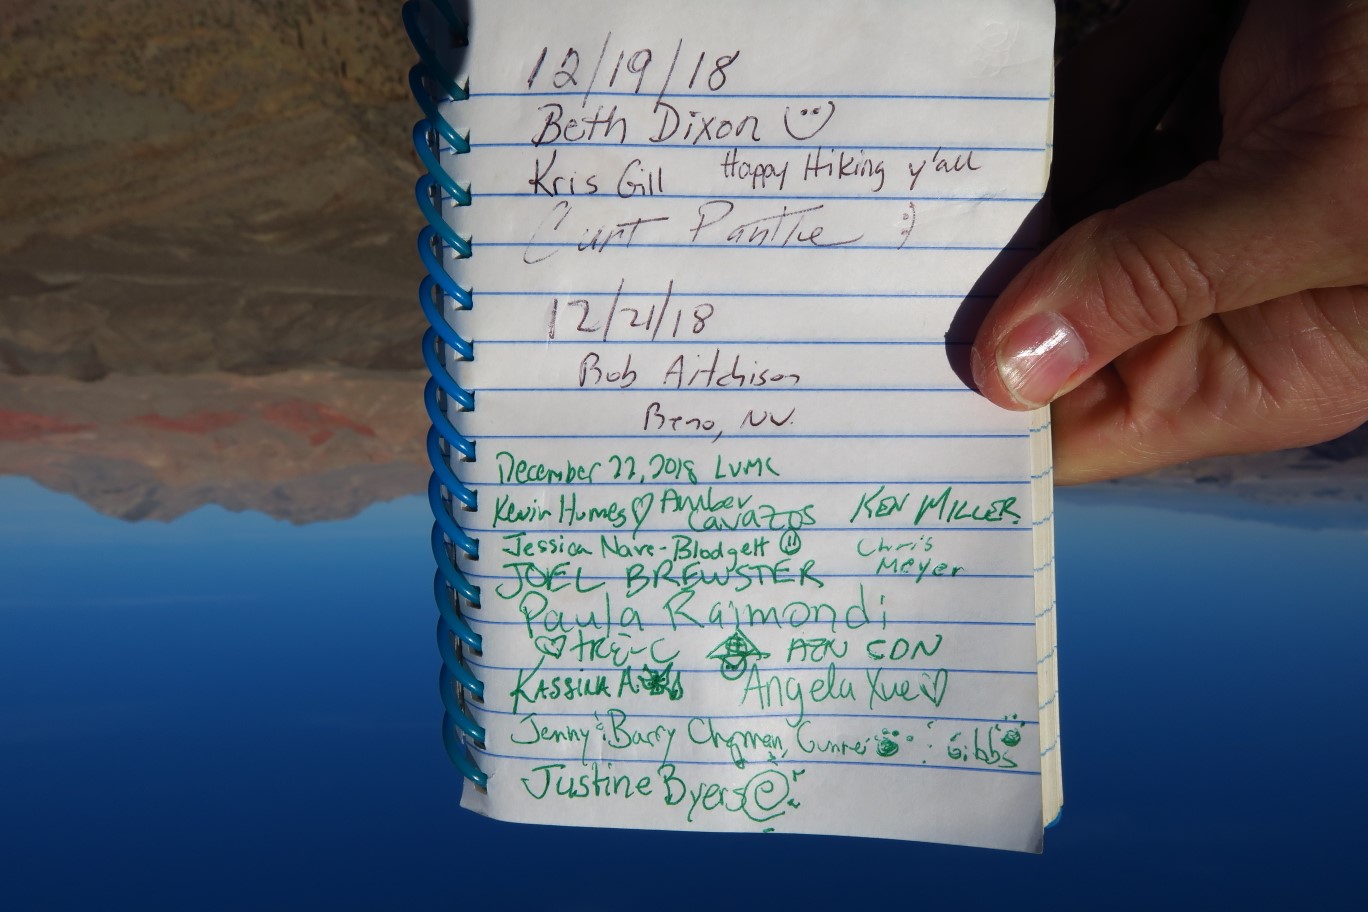 12/19/18
Beth Dixon
Kris Gill Happy Hiking y'all
Curt Panthe :)
12/21/18
Bob Aitchison
Reno, NV.
December 22, 2018 LVMC
Kevin Humes Amber Cavazos KEN MILLER
Jessica Nare-Blodgett Chris Meyer
JOEL BREWSTER
Paula Raimondi
TRE-C AZN SDN
KASSIKA A Angela Xue
Jenny & Barry Chapman, Gunner & Gibbs
Justine Byers